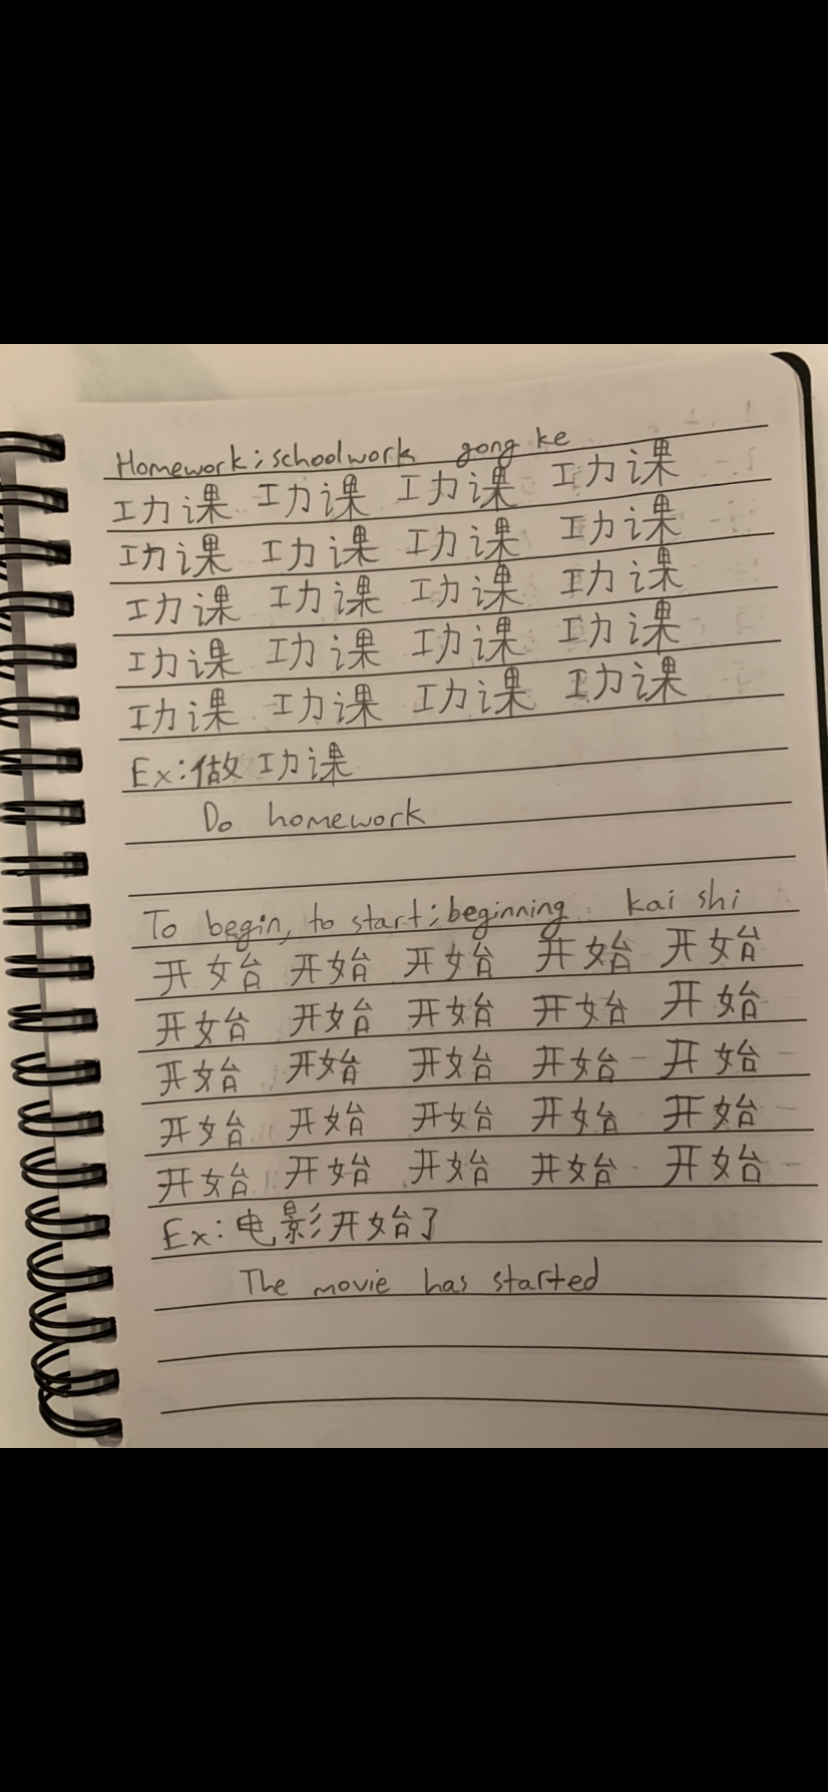 Homework; schoolwork gong ke
功课 功课 功课 功课
功课 功课 功课 功课
功课 功课 功课 功课
功课 功课 功课 功课
功课 功课 功课 功课
Ex: 做功课
Do homework
To begin, to start; beginning kai shi
开始 开始 开始 开始 开始
开始 开始 开始 开始 开始
开始 开始 开始 开始 开始
开始 开始 开始 开始 开始
开始 开始 开始 开始 开始
Ex: 电影开始了
The movie has started